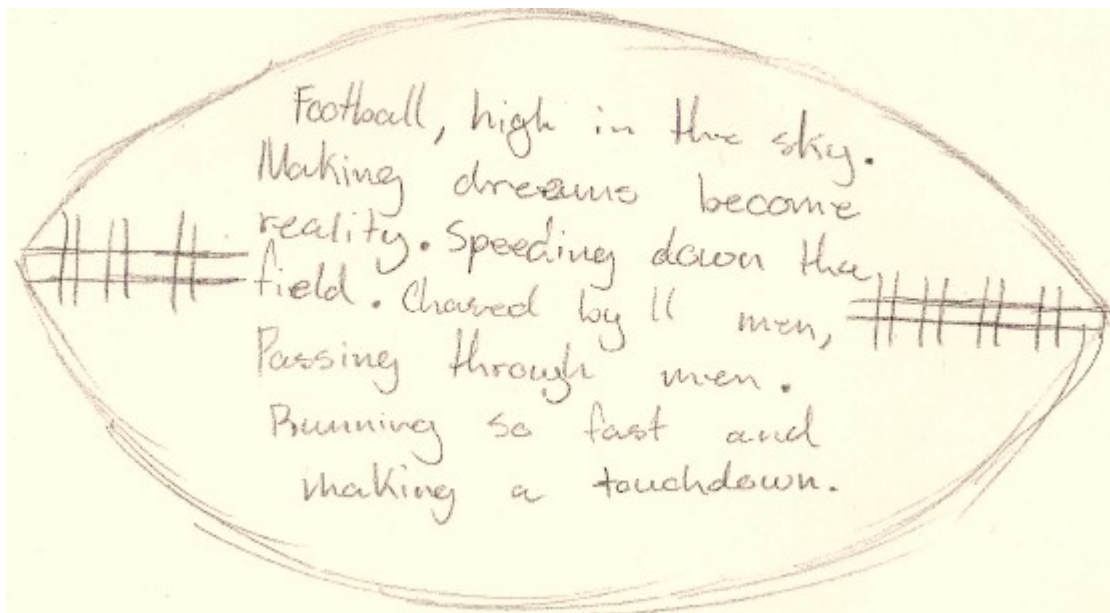 Football, high in the sky.
Making dreams become
reality. Speeding down the
field. Chased by 11 men,
Passing through men.
Running so fast and
making a touchdown.